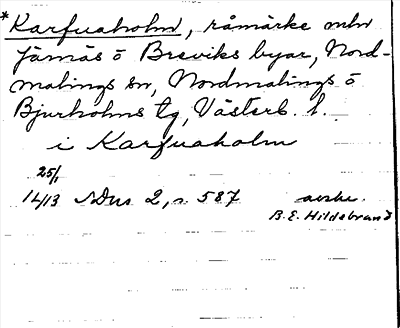 *Karfuaholm, råmärke mln
Järnäs o Breviks byar, Nord-
malings sn, Nordmalings o
Bjurholms tg, Västerb. l.
i Karfuaholm
25/1
1413 SDns 2, s. 587 avskr.
B.E. Hildebrand